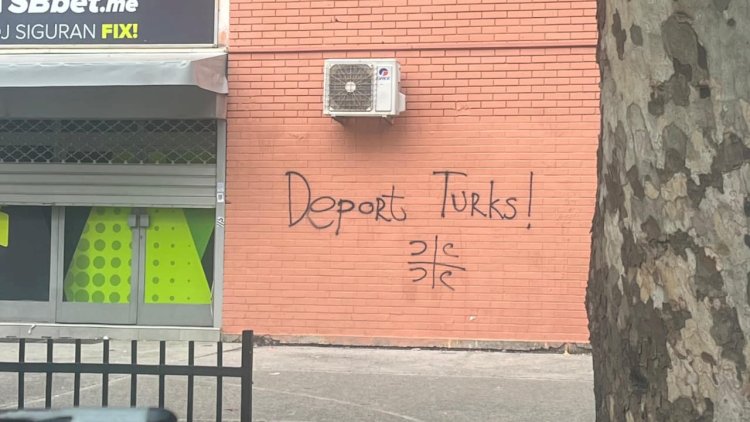 SBbet.me
J SIGURAN FIX!
GREE
Deport Turks!